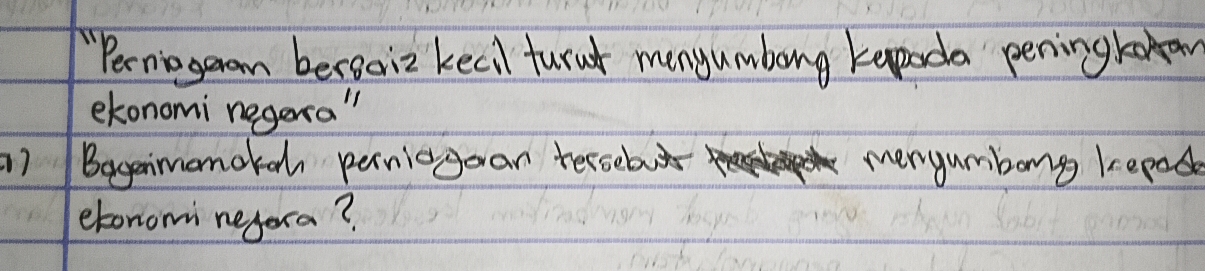 "Perniagaan bersaiz kecil turut menyumbang kepada peningkatan
ekonomi negara"
a) Bagaimanakah perniagaan tersebut menyumbang kepada
ekonomi negara?